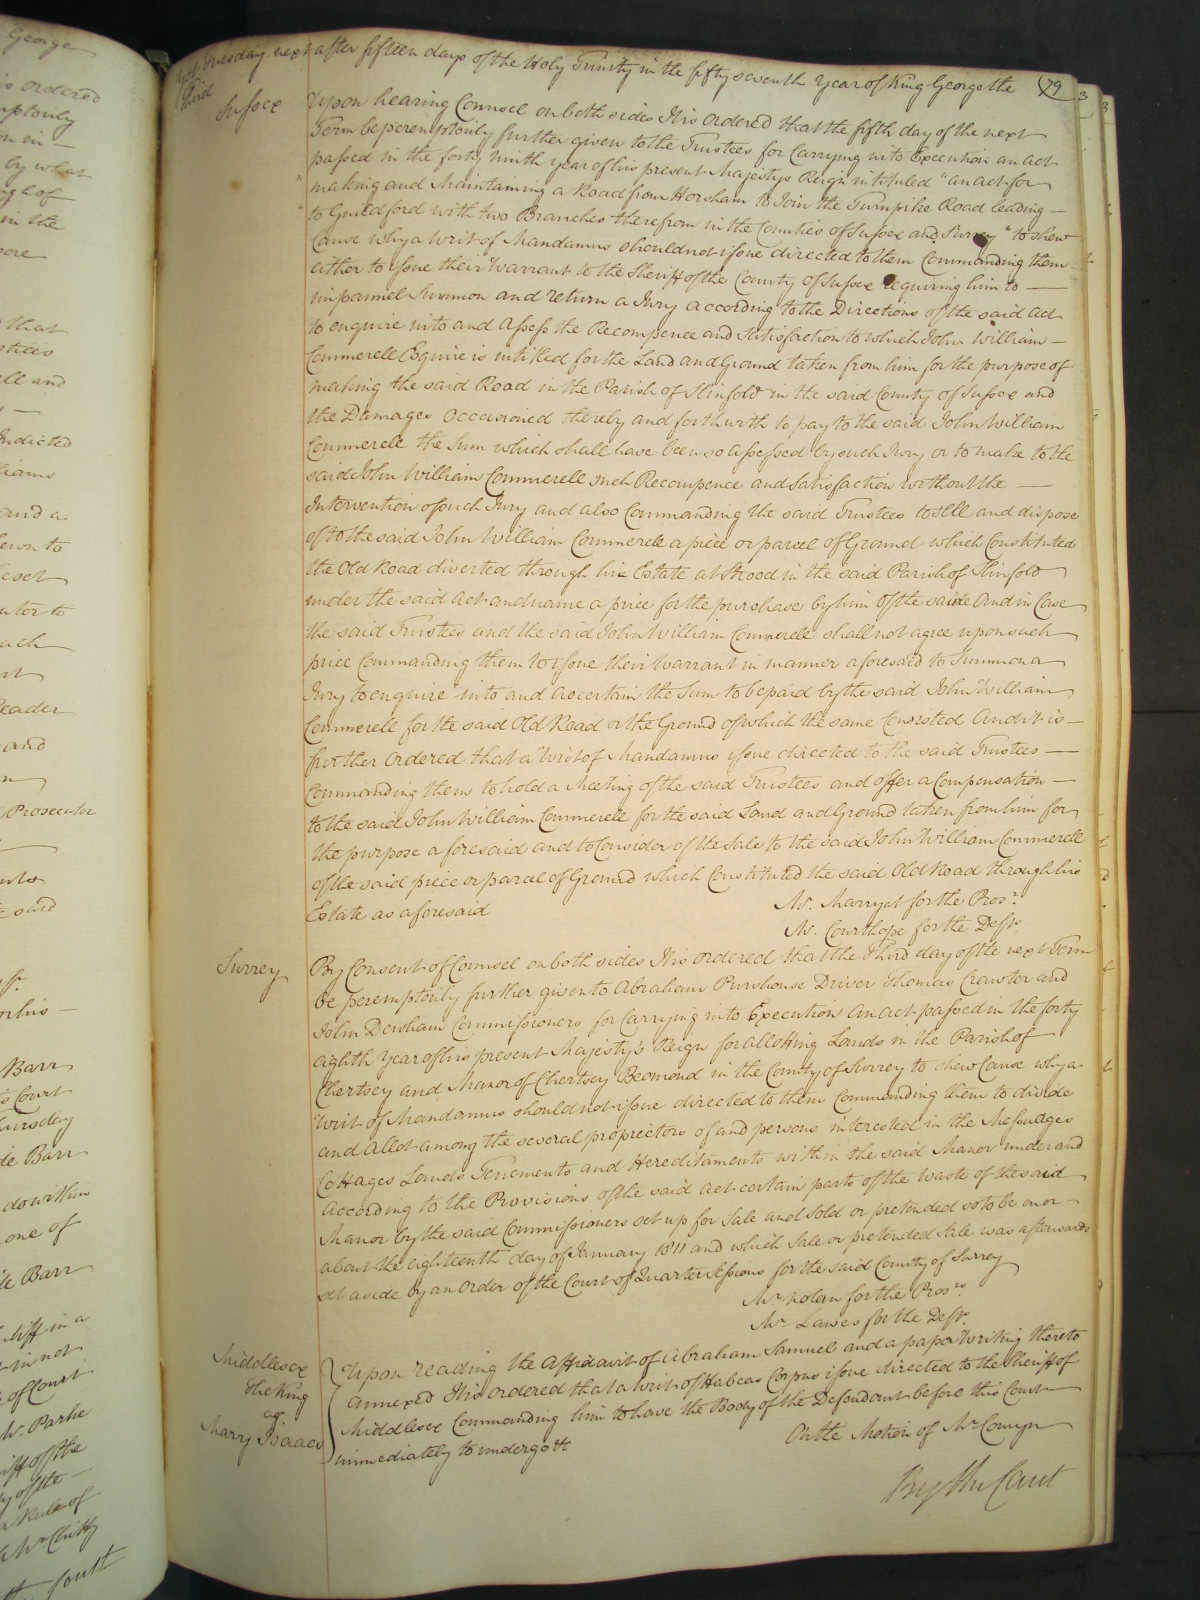 George
Yet Tuesday next after fifteen days of the Holy Trinity in the fifty seventh Year of King George the
Third
79
3
3
Sussex
Upon hearing Counsel on both sides It is Ordered that the fifth day of the next
Term be peremptorily further given to the Trustees for Carrying into Execution an Act
passed in the forty ninth year of his present Majestys Reign intituled "an act for
" making and Maintaining a Road from Horsham to Join the Turnpike Road leading —
" to Guildford with two Branches therefrom in the Counties of Sussex and Surry" to shew
Cause why a Writ of Mandamus should not issue directed to them Commanding them
either to issue their Warrant to the Sheriff of the County of Sussex requiring him to —
impannel Summon and return a Jury according to the Directions of the said Act
to enquire into and Assess the Recompence and Satisfaction to which John William —
Commerell Esquire is intitled for the Land and Ground taken from him for the purpose of
making the said Road in the Parish of Slinfold in the said County of Sussex and
the Damages occasioned thereby and forthwith to pay to the said John William
Commerell the Sum which shall have been so assessed by such Jury or to make to the
said John William Commerell such Recompence and Satisfaction without the —
Intervention of such Jury and also Commanding the said Trustees to sell and dispose
of to the said John William Commerell a piece or parcel of Ground which Constituted
the Old Road diverted through his Estate at Strood in the said Parish of Slinfold
under the said Act and name a price for the purchase by him of the same And in Case
the said Trustees and the said John William Commerell shall not agree upon such
price Commanding them to issue their Warrant in manner aforesaid to Summon a
Jury to enquire into and ascertain the Sum to be paid by the said John William
Commerell for the said Old Road or the Ground of which the same Consisted And it is —
further Ordered that a Writ of Mandamus issue directed to the said Trustees —
Commanding them to hold a Meeting of the said Trustees and offer a Compensation —
to the said John William Commerell for the said Land and Ground taken from him for
the purpose aforesaid and to Consider of the Sale to the said John William Commerell
of the said piece or parcel of Ground which Constituted the said Old Road through his
Estate as aforesaid
Mr. Marryat for the Prosr.
Mr. Courthope for the Defts.
Surrey
By Consent of Counsel on both sides It is ordered that the Third day of the next Term
be peremptorily further given to Abraham Purshouse Driver Thomas Crawter and
John Dersham Commissioners for Carrying into Execution An act passed in the forty
eighth Year of his present Majesty's Reign for allotting Lands in the Parish of
Chertsey and Manor of Chertsey Beomond in the County of Surrey to shew Cause why a
Writ of Mandamus should not issue directed to them Commanding them to divide
and allot among the several proprietors of and persons interested in the Messuages
Cottages Lands Tenements and Hereditaments within the said Manor under and
according to the Provisions of the said Act certain parts of the waste of the said
Manor by the said Commissioners set up for Sale and Sold or pretended so to be on or
about the eighteenth day of January 1811 and which Sale or pretended Sale was afterwards
set aside by an Order of the Court of Quarter Sessions for the said County of Surrey
Mr. Nolan for the Prosrs.
Mr. Lawes for the Defts.
Middlesex
The King
agt.
Mary Isaacs
Upon reading the Affidavit of Abraham Samuel and a paper Writing thereto
annexed It is ordered that a writ of Habeas Corpus issue directed to the Sheriff of
Middlesex Commanding him to have the Body of the Defendant before this Court
immediately to undergo &c
On the Motion of Mr. Comyn
By the Court